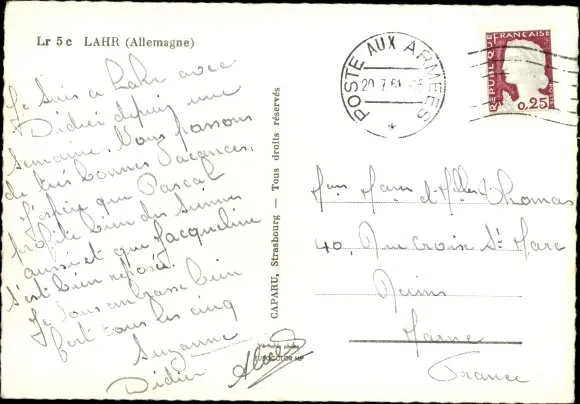 Lr 5 c LAHR (Allemagne)
Je suis à Lahr avec
Didier depuis une
semaine. Nous passons
de très bonnes vacances.
J'espère que Pascal
profite bien des siennes
aussi et que Jacqueline
s'est bien reposée.
Je vous embrasse bien
fort tous les cinq
Suzanne
Didier
CAPARU, Strasbourg — Tous droits réservés
Véritable photo
POSTE AUX ARMÉES
20.7.61
REPUBLIQUE FRANÇAISE
0,25
Thomas
40, Rue Croix St Marc
Reims
Marne
France